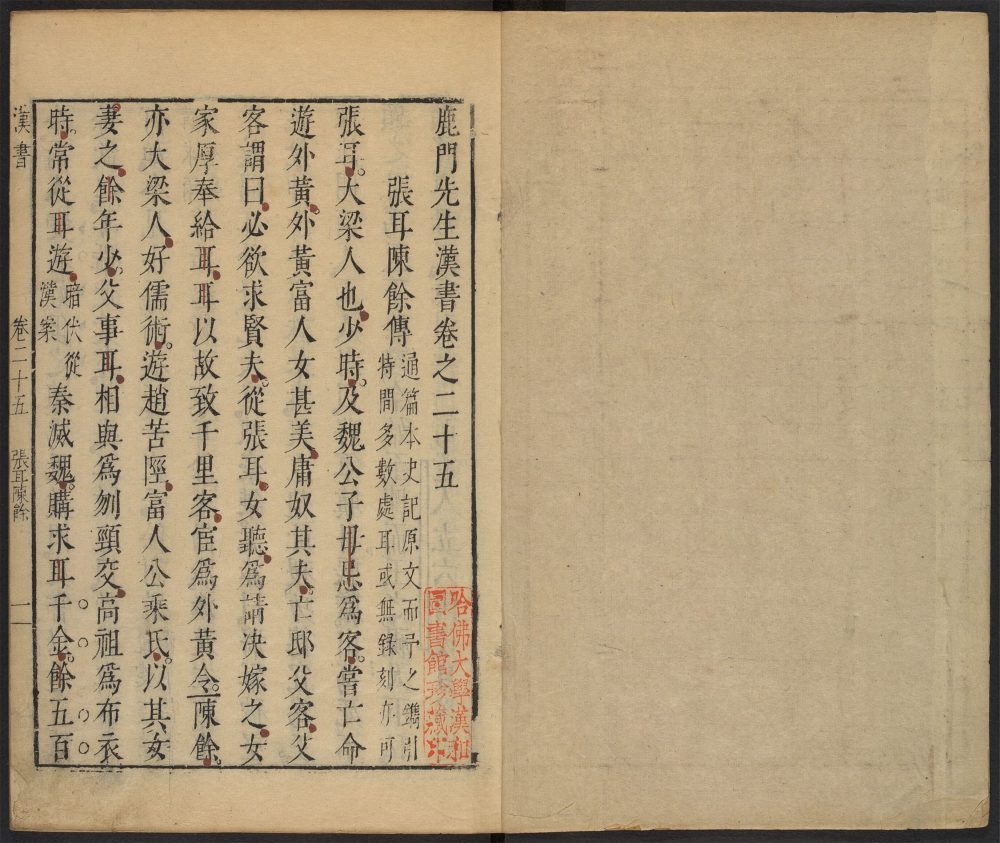 鹿門先生漢書卷之二十五
張耳陳餘傳
通篇本史記原文而予之鐫引
特間多數處耳或無録刻亦可
張耳大梁人也少時及魏公子毋忌爲客嘗亡命
遊外黃外黃富人女甚美庸奴其夫亡邸父客父
客謂曰必欲求賢夫從張耳女聽爲請决嫁之女
家厚奉給耳耳以故致千里客宦爲外黃令陳餘
亦大梁人好儒術遊趙苦陘富人公乘氏以其女
妻之餘年少父事耳相與爲刎頸交高祖爲布衣
時常從耳遊
暗伏從
漢案
秦滅魏購求耳千金餘五百
漢書
卷二十五
張耳陳餘
一
哈佛大學漢和
圖書館珍藏印